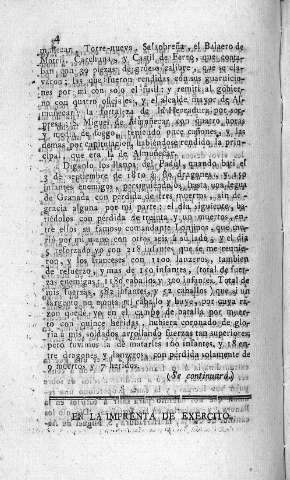 4
Torre-nueva, Salobreña, el Baluero de
Motril, Carchuna, y Castil de Ferro, que conta-
ban con 39 piezas de grueso calibre, que se cla-
varon; las que fueron rendidas con sus guarnicio-
nes por mi con solo el fusil: y remití al gobier-
no con quatro oficiales, y el alcalde mayor de Al-
muñecar: la fortaleza de la Herradura por sor-
presa: S. Miguel de Almuñecar con quatro horas
y media de fuego, teniendo once cañones, y las
demas por capitulacion, habiéndose rendido la prin-
cipal, que era la de Almuñecar.
Diganlo los llanos del Padul, quando batí el
3 de septiembre de 1810 á 80 dragones, y 150
infantes enemigos, persiguiéndolos hasta una legua
de Granada con pérdida de tres muertos, sin des-
gracia alguna por mi parte: el dia siguiente, ba-
tiéndolos con pérdida de treinta y un muertos, en-
tre ellos su famoso comandante que mu-
rió por mi mano con otros seis á su lado, y el dia
5 reforzado yo con 218 infantes, que se me reunie-
ron, y los franceses con 1100 lanzeros, tambien
de refuerzo, y mas de 150 infantes, (total de fuer-
zas enemigas: 1180 caballos y 300 infantes. Total de
mis fuerzas, 282 infantes, y 52 caballos que si un
sargento no monta mi caballo y huye, por cuya ra-
zon quedé yo en el campo de batalla por muer-
to con quince heridas, hubiera coronado de glo-
ria á mis soldados arrollando fuerzas tan superiores
pero tuvimos la de matarles 160 infantes, y 18 en-
tre dragones y lanzeros con pérdida solamente de
9 muertos y 7 heridos.
(Se continuará.)
EN LA IMPRENTA DE EXÉRCITO.